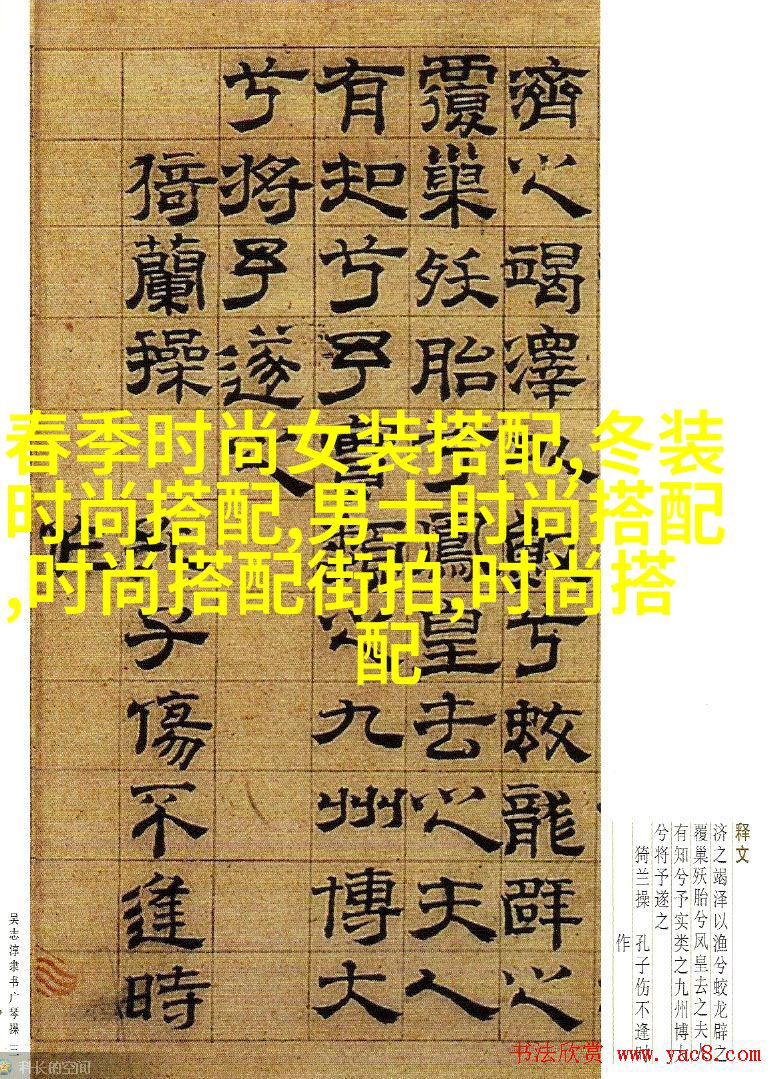 濟之竭澤
覆巢殀胎兮鳳皇去之夫人
有知兮予
之九州博大
兮將予遂之
猗蘭操
子傷不逢時
春季时尚女装搭配,冬装
时尚搭配,男士时尚搭配
,时尚搭配街拍,时尚搭
配
释文
济之竭泽以渔兮蛟龙辟之
覆巢殀胎兮凤皇去之夫人
有知兮予实类之九州博大
兮将予遂之
猗兰操 孔子伤不逢时
作
吴志淳隶书广琴操 三
科长的空间
书法欣赏 www.yac8.com